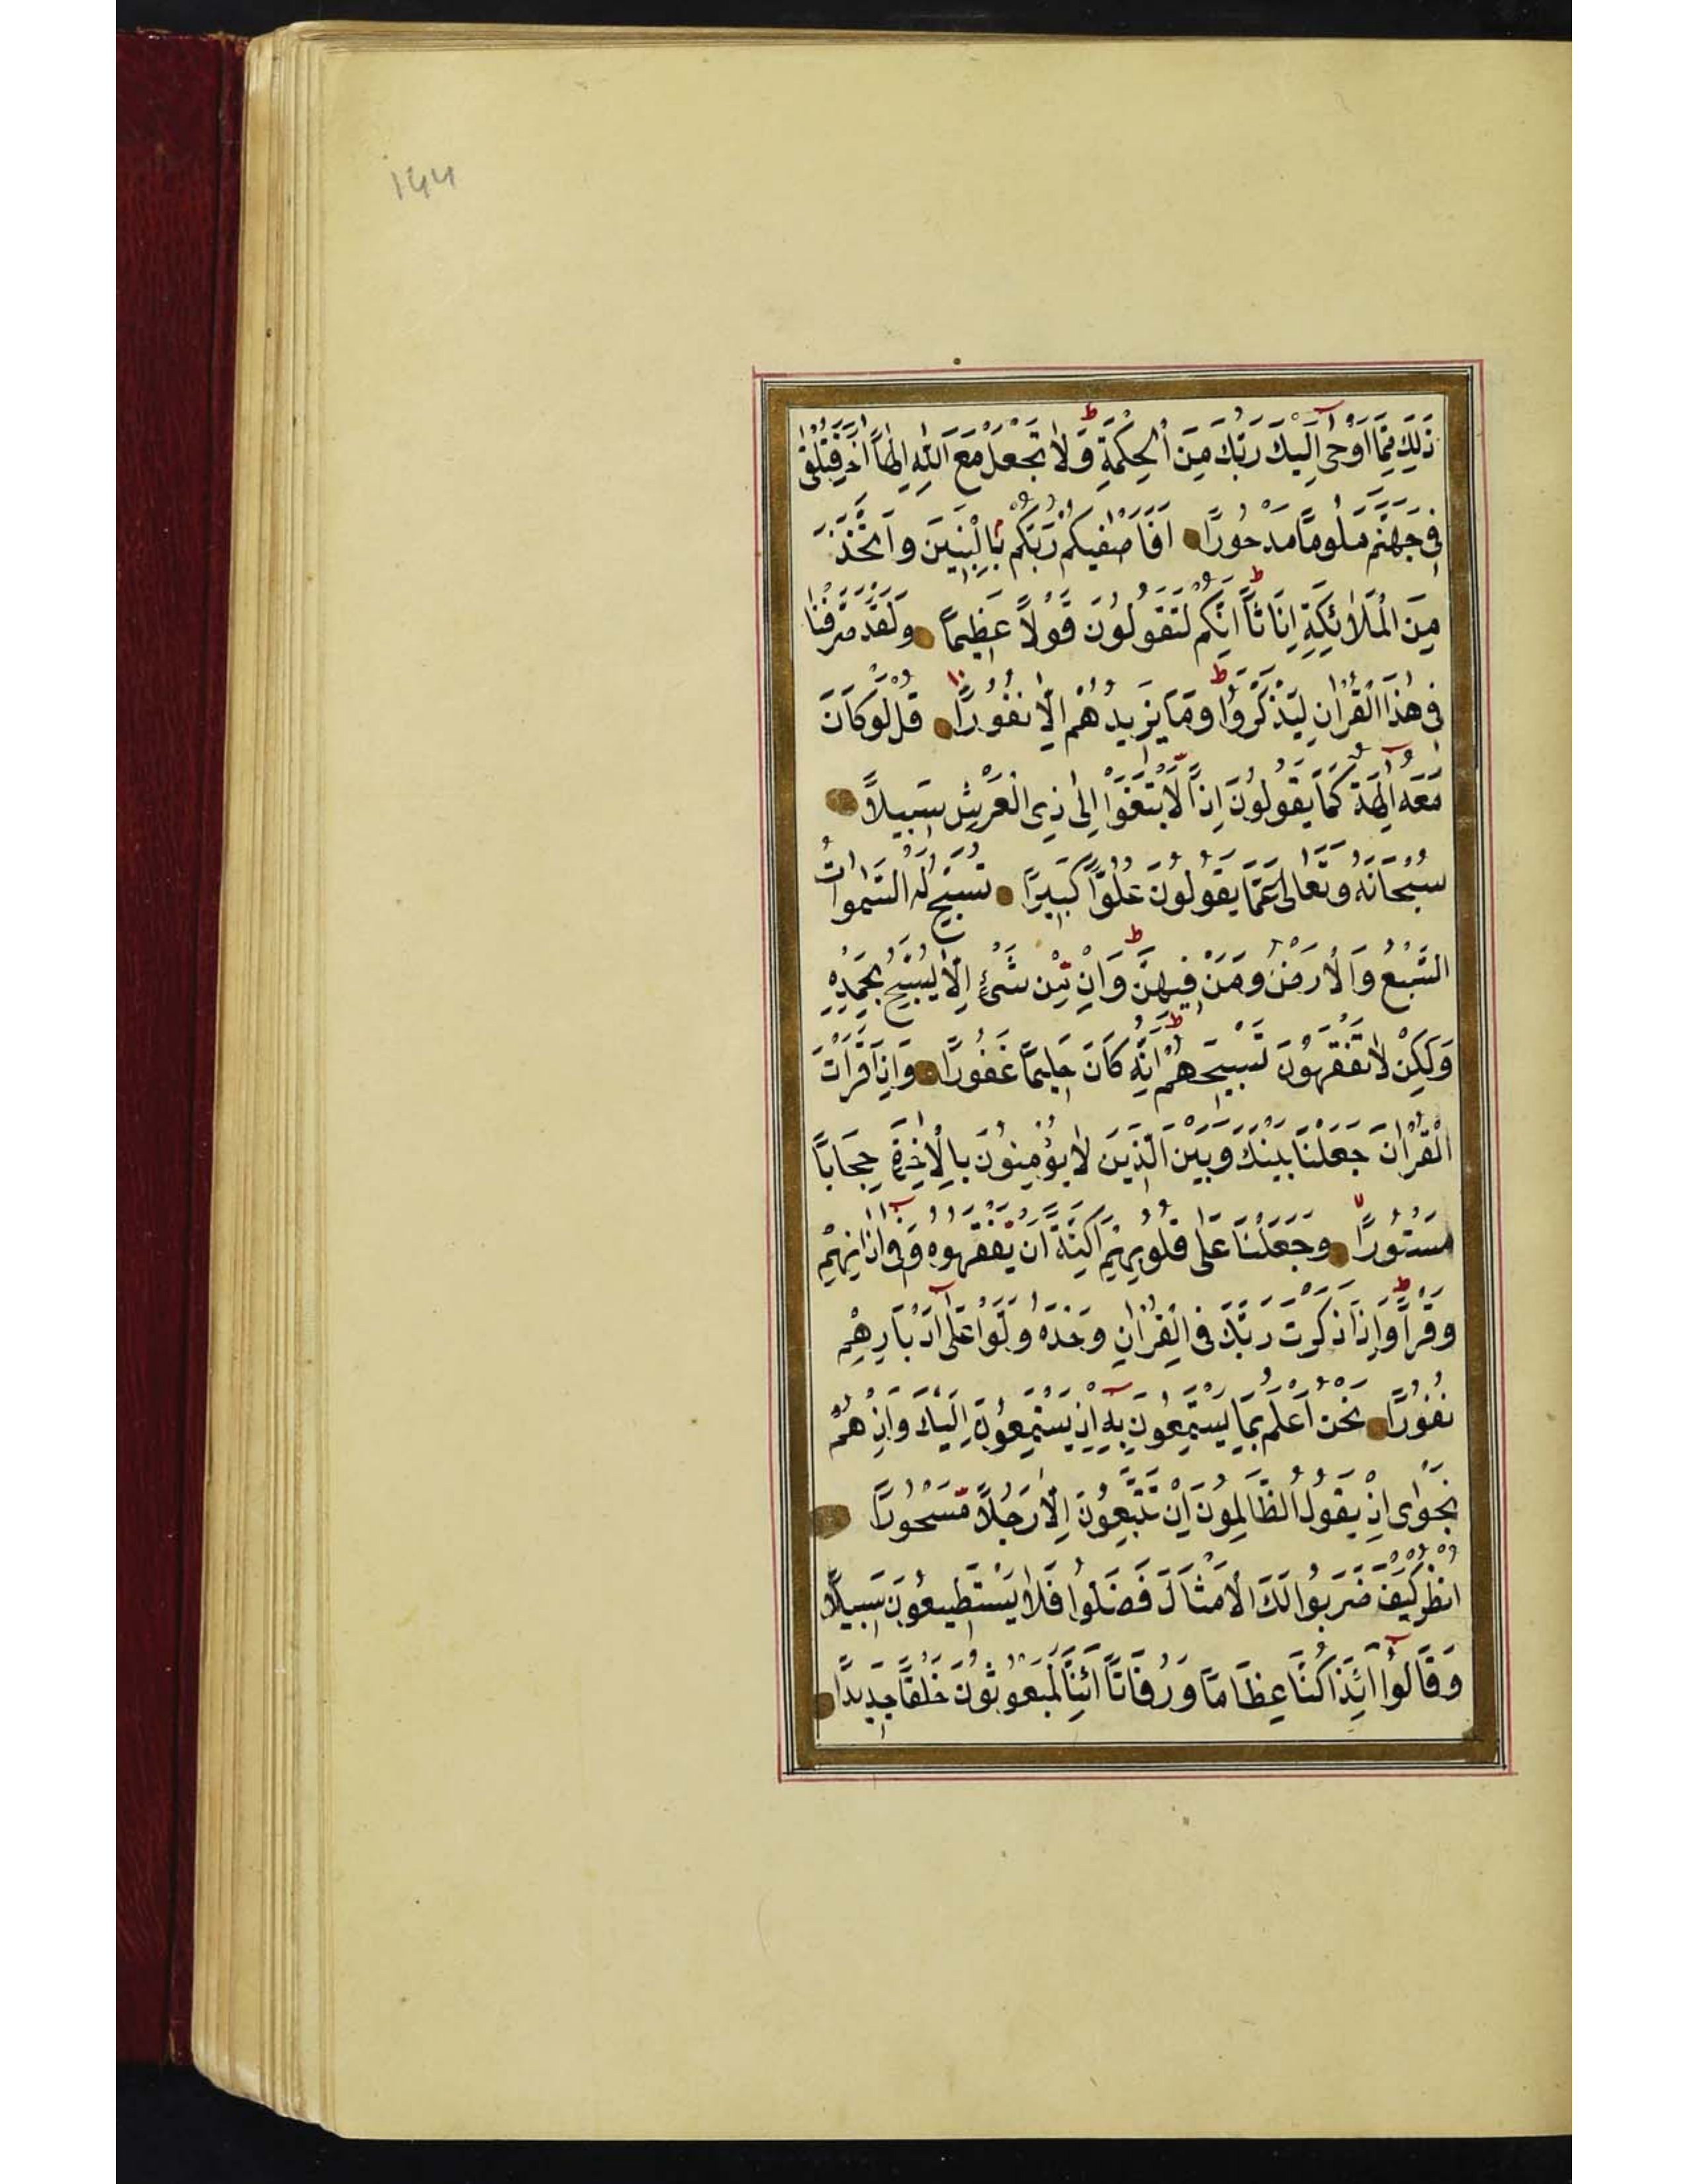 ١٤٤
ذٰلِكَ مِمَّا اَوْحٰى اِلَيْكَ رَبُّكَ مِنَ الْحِكْمَةِ وَلَا تَجْعَلْ مَعَ اللّٰهِ اِلٰهًا اٰخَرَ فَتُلْقٰى
فِى جَهَنَّمَ مَلُومًا مَدْحُورًا اَفَاَصْفٰيكُمْ رَبُّكُمْ بِالْبَنِينَ وَاتَّخَذَ
مِنَ الْمَلٰائِكَةِ اِنَاثًا اِنَّكُمْ لَتَقُولُونَ قَوْلًا عَظِيمًا وَلَقَدْ صَرَّفْنَا
فِى هٰذَا الْقُرْاٰنِ لِيَذَّكَّرُوا وَمَا يَزِيدُهُمْ اِلَّا نُفُورًا قُلْ لَوْ كَانَ
مَعَهُ اٰلِهَةٌ كَمَا يَقُولُونَ اِذًا لَابْتَغَوْا اِلٰى ذِى الْعَرْشِ سَبِيلًا
سُبْحَانَهُ وَتَعَالٰى عَمَّا يَقُولُونَ عُلُوًّا كَبِيرًا تُسَبِّحُ لَهُ السَّمٰوَاتُ
السَّبْعُ وَالْاَرْضُ وَمَنْ فِيهِنَّ وَاِنْ مِنْ شَىْءٍ اِلَّا يُسَبِّحُ بِحَمْدِهِ
وَلٰكِنْ لَا تَفْقَهُونَ تَسْبِيحَهُمْ اِنَّهُ كَانَ حَلِيمًا غَفُورًا وَاِذَا قَرَاْتَ
الْقُرْاٰنَ جَعَلْنَا بَيْنَكَ وَبَيْنَ الَّذِينَ لَا يُؤْمِنُونَ بِالْاٰخِرَةِ حِجَابًا
مَسْتُورًا وَجَعَلْنَا عَلٰى قُلُوبِهِمْ اَكِنَّةً اَنْ يَفْقَهُوهُ وَفِى اٰذَانِهِمْ
وَقْرًا وَاِذَا ذَكَرْتَ رَبَّكَ فِى الْقُرْاٰنِ وَحْدَهُ وَلَّوْا عَلٰى اَدْبَارِهِمْ
نُفُورًا نَحْنُ اَعْلَمُ بِمَا يَسْتَمِعُونَ بِهِ اِذْ يَسْتَمِعُونَ اِلَيْكَ وَاِذْ هُمْ
نَجْوٰى اِذْ يَقُولُ الظَّالِمُونَ اِنْ تَتَّبِعُونَ اِلَّا رَجُلًا مَسْحُورًا
اُنْظُرْ كَيْفَ ضَرَبُوا لَكَ الْاَمْثَالَ فَضَلُّوا فَلَا يَسْتَطِيعُونَ سَبِيلًا
وَقَالُوا اَئِذَا كُنَّا عِظَامًا وَرُفَاتًا اَئِنَّا لَمَبْعُوثُونَ خَلْقًا جَدِيدًا